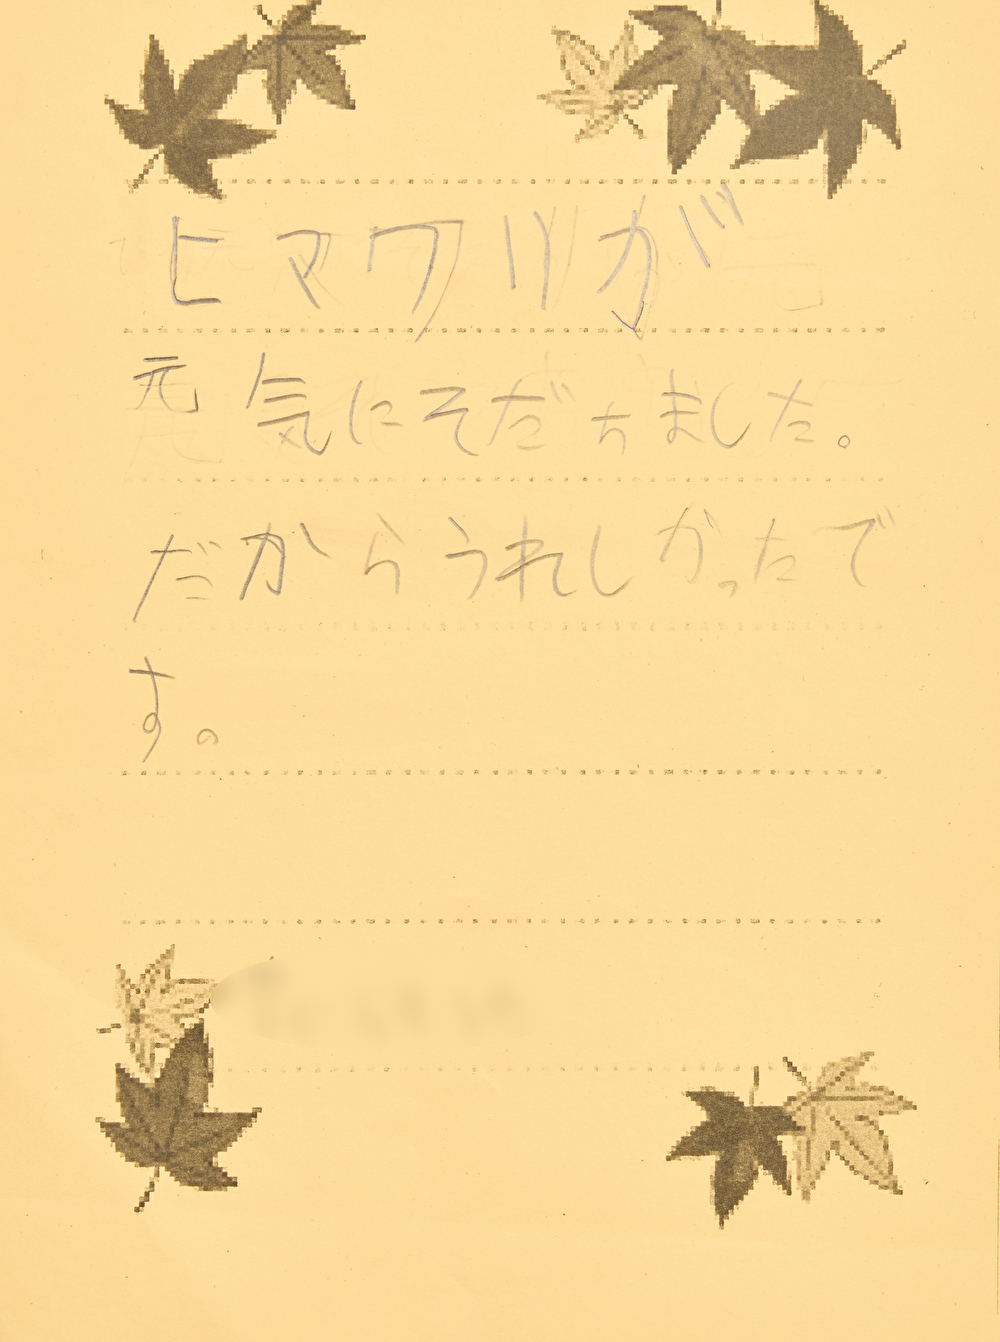 ヒマワリが
元気にそだちました。
だからうれしかったで
す。